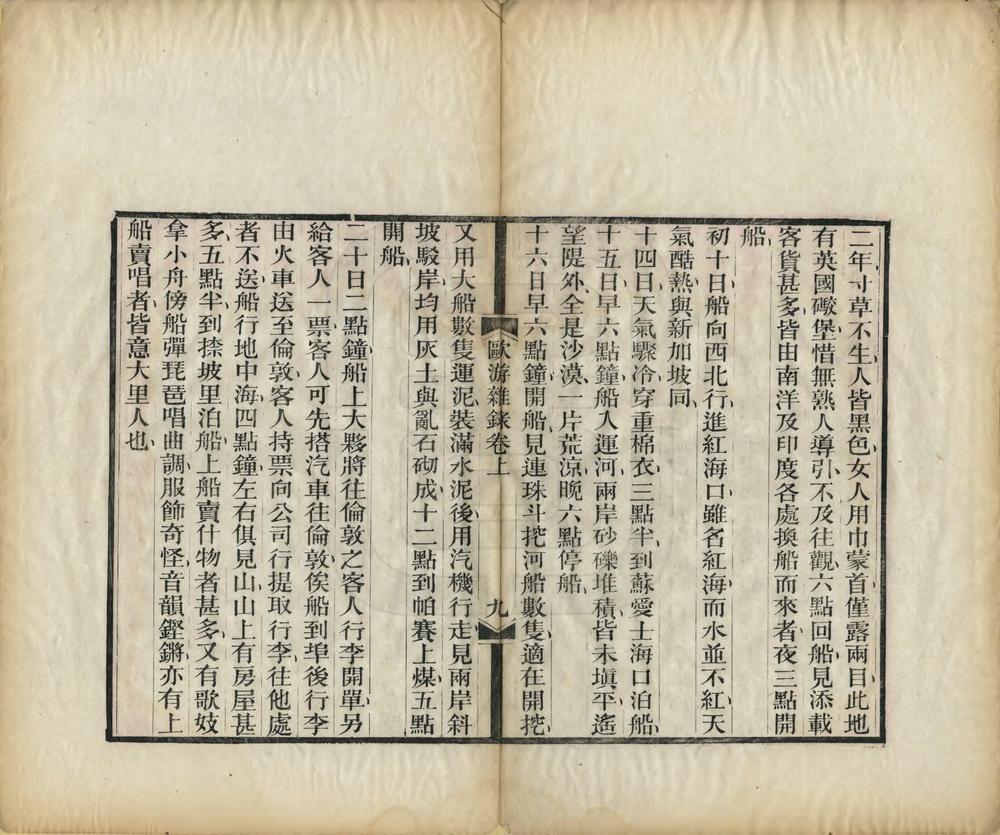 二年寸草不生、人皆黑色、女人用巾蒙首僅露兩目此地
有英國礮堡惜無熟人導引、不及往觀、六點回船、見添載
客貨甚多、皆由南洋及印度各處換船而來者、夜三點開
船、
初十日船向西北行進紅海口、雖名紅海而水並不紅、天
氣酷熱、與新加坡同、
十四日天氣驟冷、穿重棉衣、三點半、到蘇愛士海口泊船、
十五日早六點鐘船入運河、兩岸砂礫堆積、皆未塡平、遙
望隄外、全是沙漠、一片荒涼、晚六點停船、
十六日早六點鐘開船、見連珠斗挖河船數隻、適在開挖、
歐游雜錄卷上
九
又用大船數隻運泥裝滿水泥後、用汽機行走、見兩岸斜
坡駁岸、均用灰土與亂石砌成、十二點到帕賽上煤、五點
開船、
二十日二點鐘、船上大夥將往倫敦之客人行李開單、另
給客人一票、客人可先搭汽車往倫敦、俟船到埠後、行李
由火車送至倫敦、客人持票向公司行提取行李、往他處
者不送、船行地中海、四點鐘、左右俱見山、山上有房屋甚
多、五點半到搽坡里泊船、上船賣什物者甚多、又有歌妓
拿小舟傍船、彈琵琶唱曲調、服飾奇怪、音韻鏗鏘、亦有上
船賣唱者、皆意大里人也、